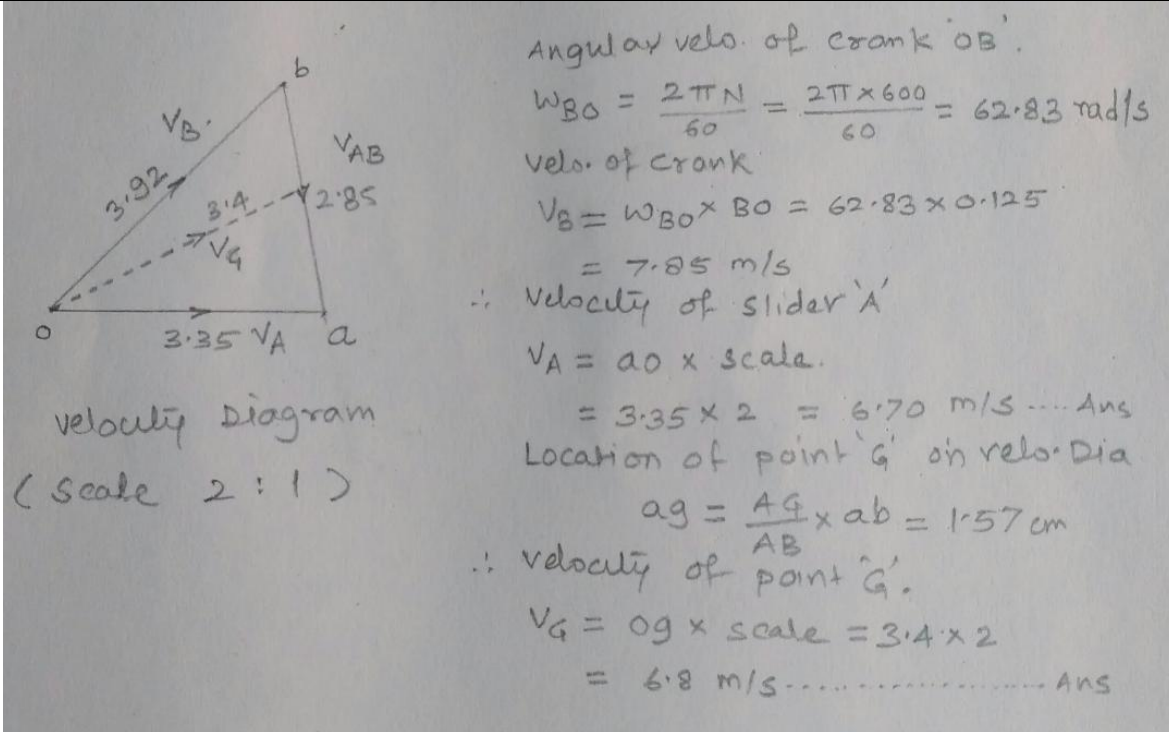 b
V_B.
3.92
V_AB
2.85
3.4
V_G
o
3.35 V_A a
velocity Diagram
(scale 2:1)
Angular velo. of crank 'OB'.
W_BO = 2πN/60 = 2π×600/60 = 62.83 rad/s
velo. of crank
V_B = W_BO × BO = 62.83 × 0.125
= 7.85 m/s
∴ velocity of slider 'A'
V_A = ao × scale.
= 3.35 × 2 = 6.70 m/s .... Ans
Location of point 'G' on velo. Dia
ag = AG/AB × ab = 1.57 cm
∴ velocity of point 'G'.
V_G = og × scale = 3.4 × 2
= 6.8 m/s ..................... Ans